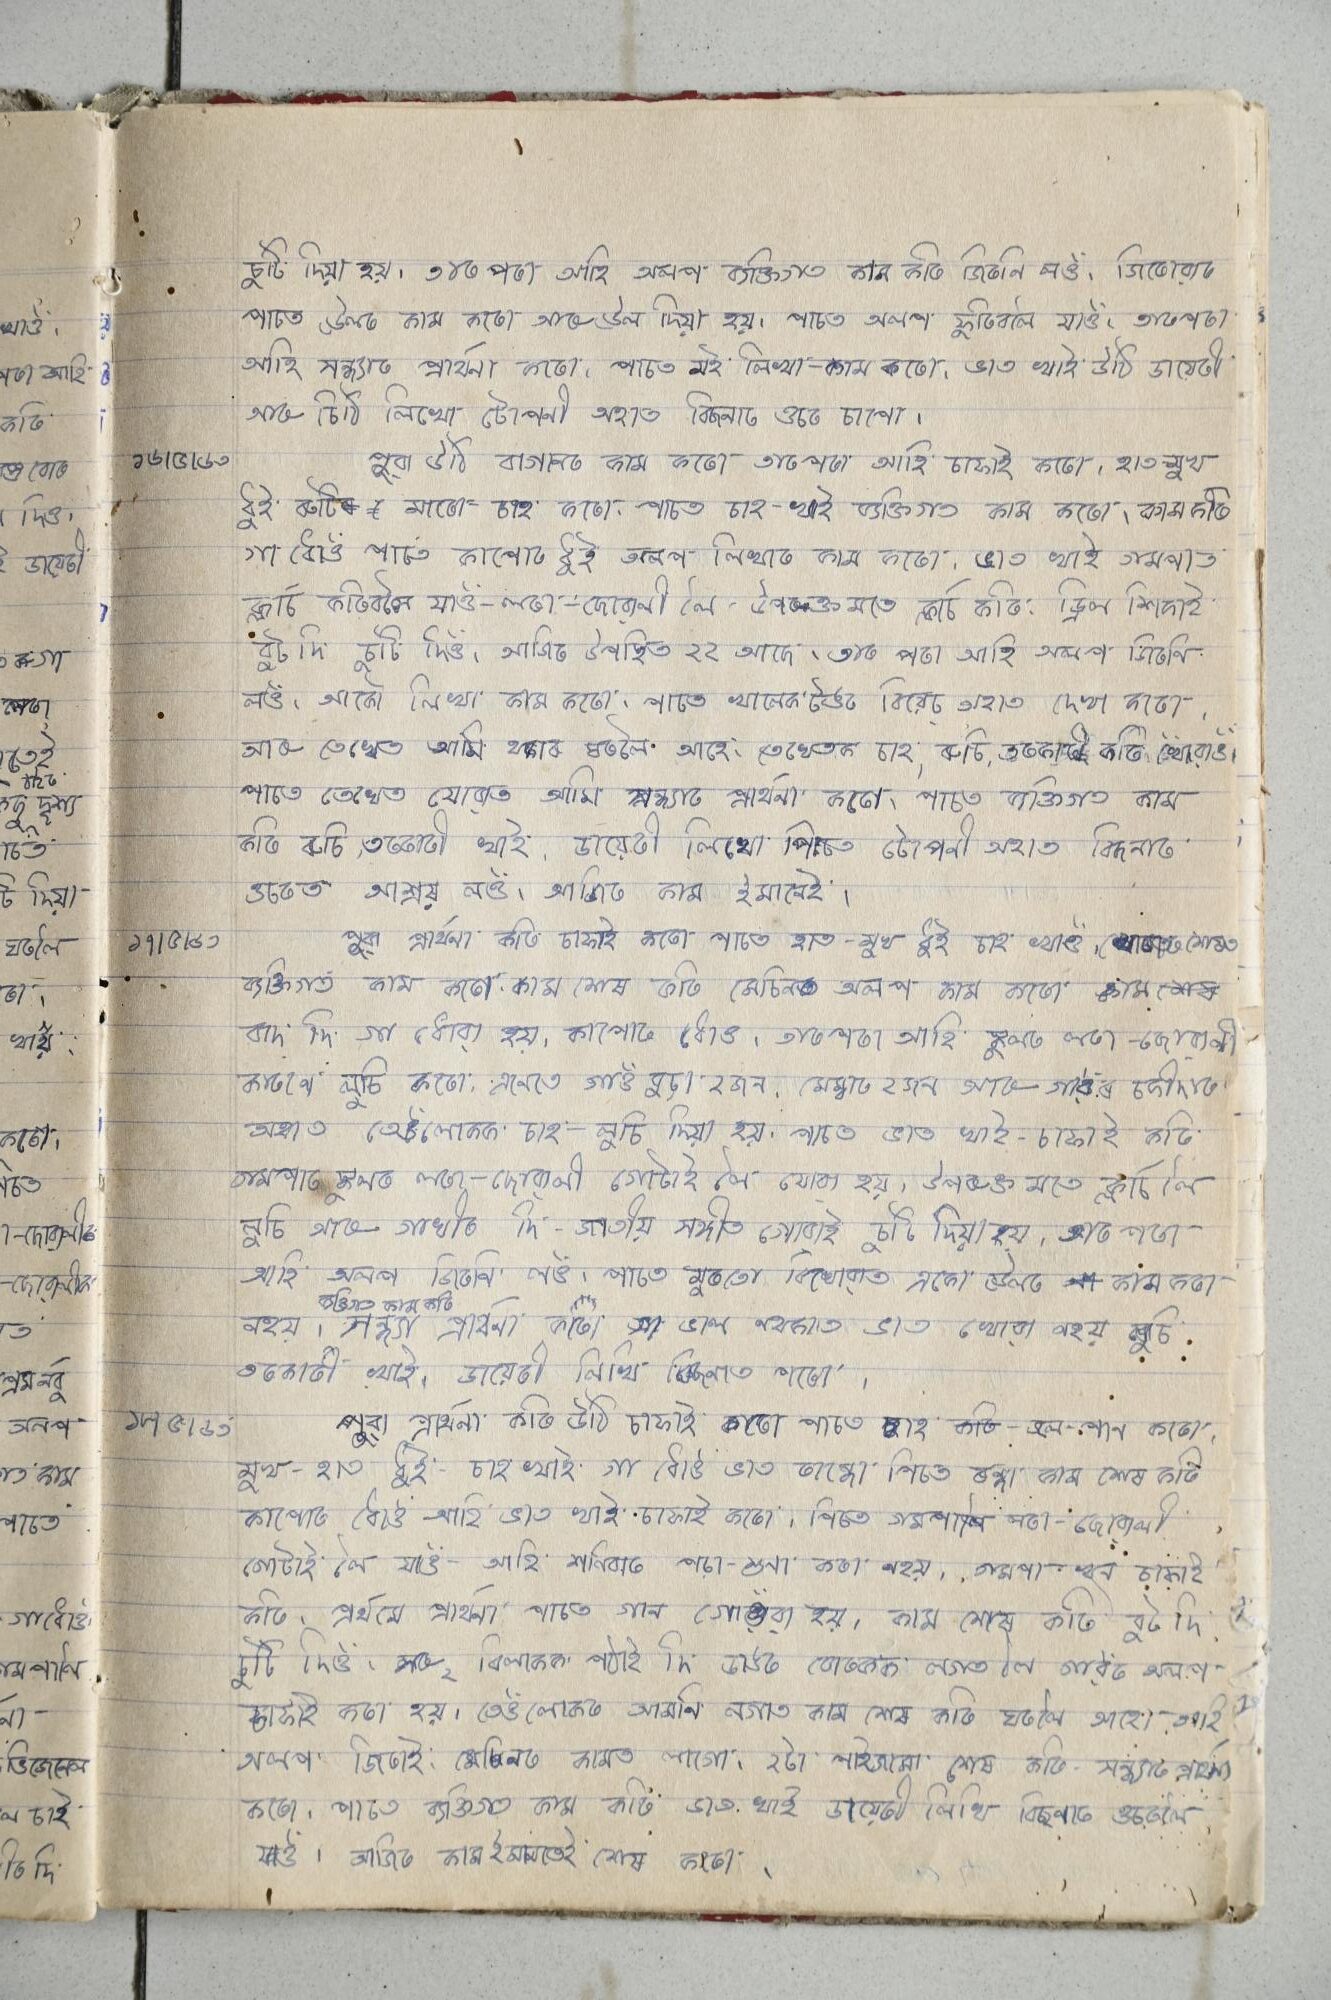 ছুটি দিয়া হয়। তাৰ পৰা আহি অলপ ব্যক্তিগত কাম কৰি জিৰণি লওঁ। জিৰোৱাৰ
পাচত উলৰ কাম কৰো আৰু উল দিয়া হয়। পাচত অলপ ফুৰিবলৈ যাওঁ। তাৰপৰা
আহি সন্ধ্যাৰ প্ৰাৰ্থনা কৰো। পাচত মই লিখা-কাম কৰো। ভাত খাই উঠি ডায়েৰী
আৰু চিঠি লিখো টোপনী অহাত বিচনাৰ ওচৰ চাপো।
১৬।৫।৬৩ পুৱা উঠি বাগানত কাম কৰো তাৰ পৰা আহি চাফাই কৰো। হাত-মুখ
ধুই ৰুটিৰ মাৰো চাহ কৰো। পাচত চাহ-খাই ব্যক্তিগত কাম কৰো। কাম কৰি
গা ধোওঁ পাচত কাপোৰ ধুই অলপ লিখাৰ কাম কৰো। ভাত খাই গমপাত
ক্লাচ কৰিবলৈ যাওঁ-লৰা-ছোৱালী লৈ উপৰুক্ত মতে ক্লাচ কৰি। ড্ৰিল শিকাই
বুট দি ছুটি দিওঁ। আজিৰ উপস্থিত ২২ আছে। তাৰ পৰা আহি অলপ জিৰণি
লওঁ। আকৌ লিখা কাম কৰো। পাচত খালেক টঙৰ বিৱেচ অহাত দেখা কৰো,
আৰু তেখেত আমি থকাৰ ঘৰলৈ আহে। তেখেতক চাহ, ৰুচি, তৰকাৰী কৰি খোৱাওঁ।
পাচত তেখেত যোৱাত আমি সন্ধ্যাৰ প্ৰাৰ্থনা কৰো। পাচত ব্যক্তিগত কাম
কৰি ৰুচি, তৰকাৰী খাই। ডায়েৰী লিখো পিচত টোপনী অহাত বিচনাৰ
ওচৰত আশ্ৰয় লওঁ। আজিৰ কাম ইমানেই।
১৭।৫।৬৩ পুৱা প্ৰাৰ্থনা কৰি চাফাই কৰো পাচত হাত-মুখ ধুই চাহ খাওঁ।
ব্যক্তিগত কাম কৰো। কাম শেষ কৰি মেচিনত অলপ কাম কৰো কাম শেষ
বাদ দি গা ধোৱা হয়। কাপোৰ ধোও। তাৰপৰা আহি স্কুলৰ লৰা-ছোৱালী
কাৰণে লুচি কৰো। এনেতে গাওঁ বুঢ়া ২জন, মেম্বাৰ ২জন আৰু গাৱঁৰ চকীদাৰ
অহাত তেওঁলোকক চাহ-লুচি দিয়া হয়। পাচত ভাত খাই-চাফাই কৰি
গমপাত স্কুলৰ লৰা-ছোৱালী গোটাই লৈ যোৱা হয়। উপৰুক্ত মতে ক্লাচ লৈ
লুচি আৰু গাখীৰ দি-জাতীয় সঙ্গীত গোৱাই ছুটি দিয়া হয়, তাৰ পৰা
আহি অলপ জিৰণি লওঁ। পাচত মূৰতো বিষোৱাত একো উলৰ কাম কৰা
ব্যক্তিগত কাম কৰি
নহয়। সন্ধ্যা প্ৰাৰ্থনা কৰো গা ভাল নথকাত ভাত খোৱা নহয় লুচি
তৰকাৰী খাই। ডায়েৰী লিখি বিচনাত পৰো।
১৮।৫।৬৩ পুৱা প্ৰাৰ্থনা কৰি উঠি চাফাই কৰো পাচত চাহ কৰি-জল-পান কৰো,
মুখ-হাত ধুই-চাহ খাই গা ধোওঁ ভাত ৰান্ধো পিচত ৰন্ধা কাম শেষ কৰি
কাপোৰ ধোওঁ আহি ভাত খাই চাফাই কৰো। পিচত গমপালৈ লৰা-ছোৱালী
গোটাই লৈ যাওঁ-আহি শনিবাৰ পঢ়া-শুনা কৰা নহয়, গমপা-খন চাফাই
কৰি, প্ৰৰ্থমে প্ৰাৰ্থনা পাচত গান গোৱা হয়, কাম শেষ কৰি বুট দি
ছুটি দিওঁ। বিলাকক পঠাই দি ডাঙৰ বোৰকক লগত লৈ গাৱঁত অলপ
চাফাই কৰা হয়। তেওঁলোকৰ আমনি লগাত কাম শেষ কৰি ঘৰলৈ আহো আহি
অলপ জিৰাই। মেচিনৰ কামত লাগো। ২টা পাইজামা শেষ কৰি-সন্ধ্যাৰ প্ৰাৰ্থনা
কৰো, পাচত ব্যক্তিগত কাম কৰি ভাত খাই ডায়েৰী লিখি বিচনাৰ ওচৰলৈ
যাওঁ। আজিৰ কাম ইমানতেই শেষ কৰো।